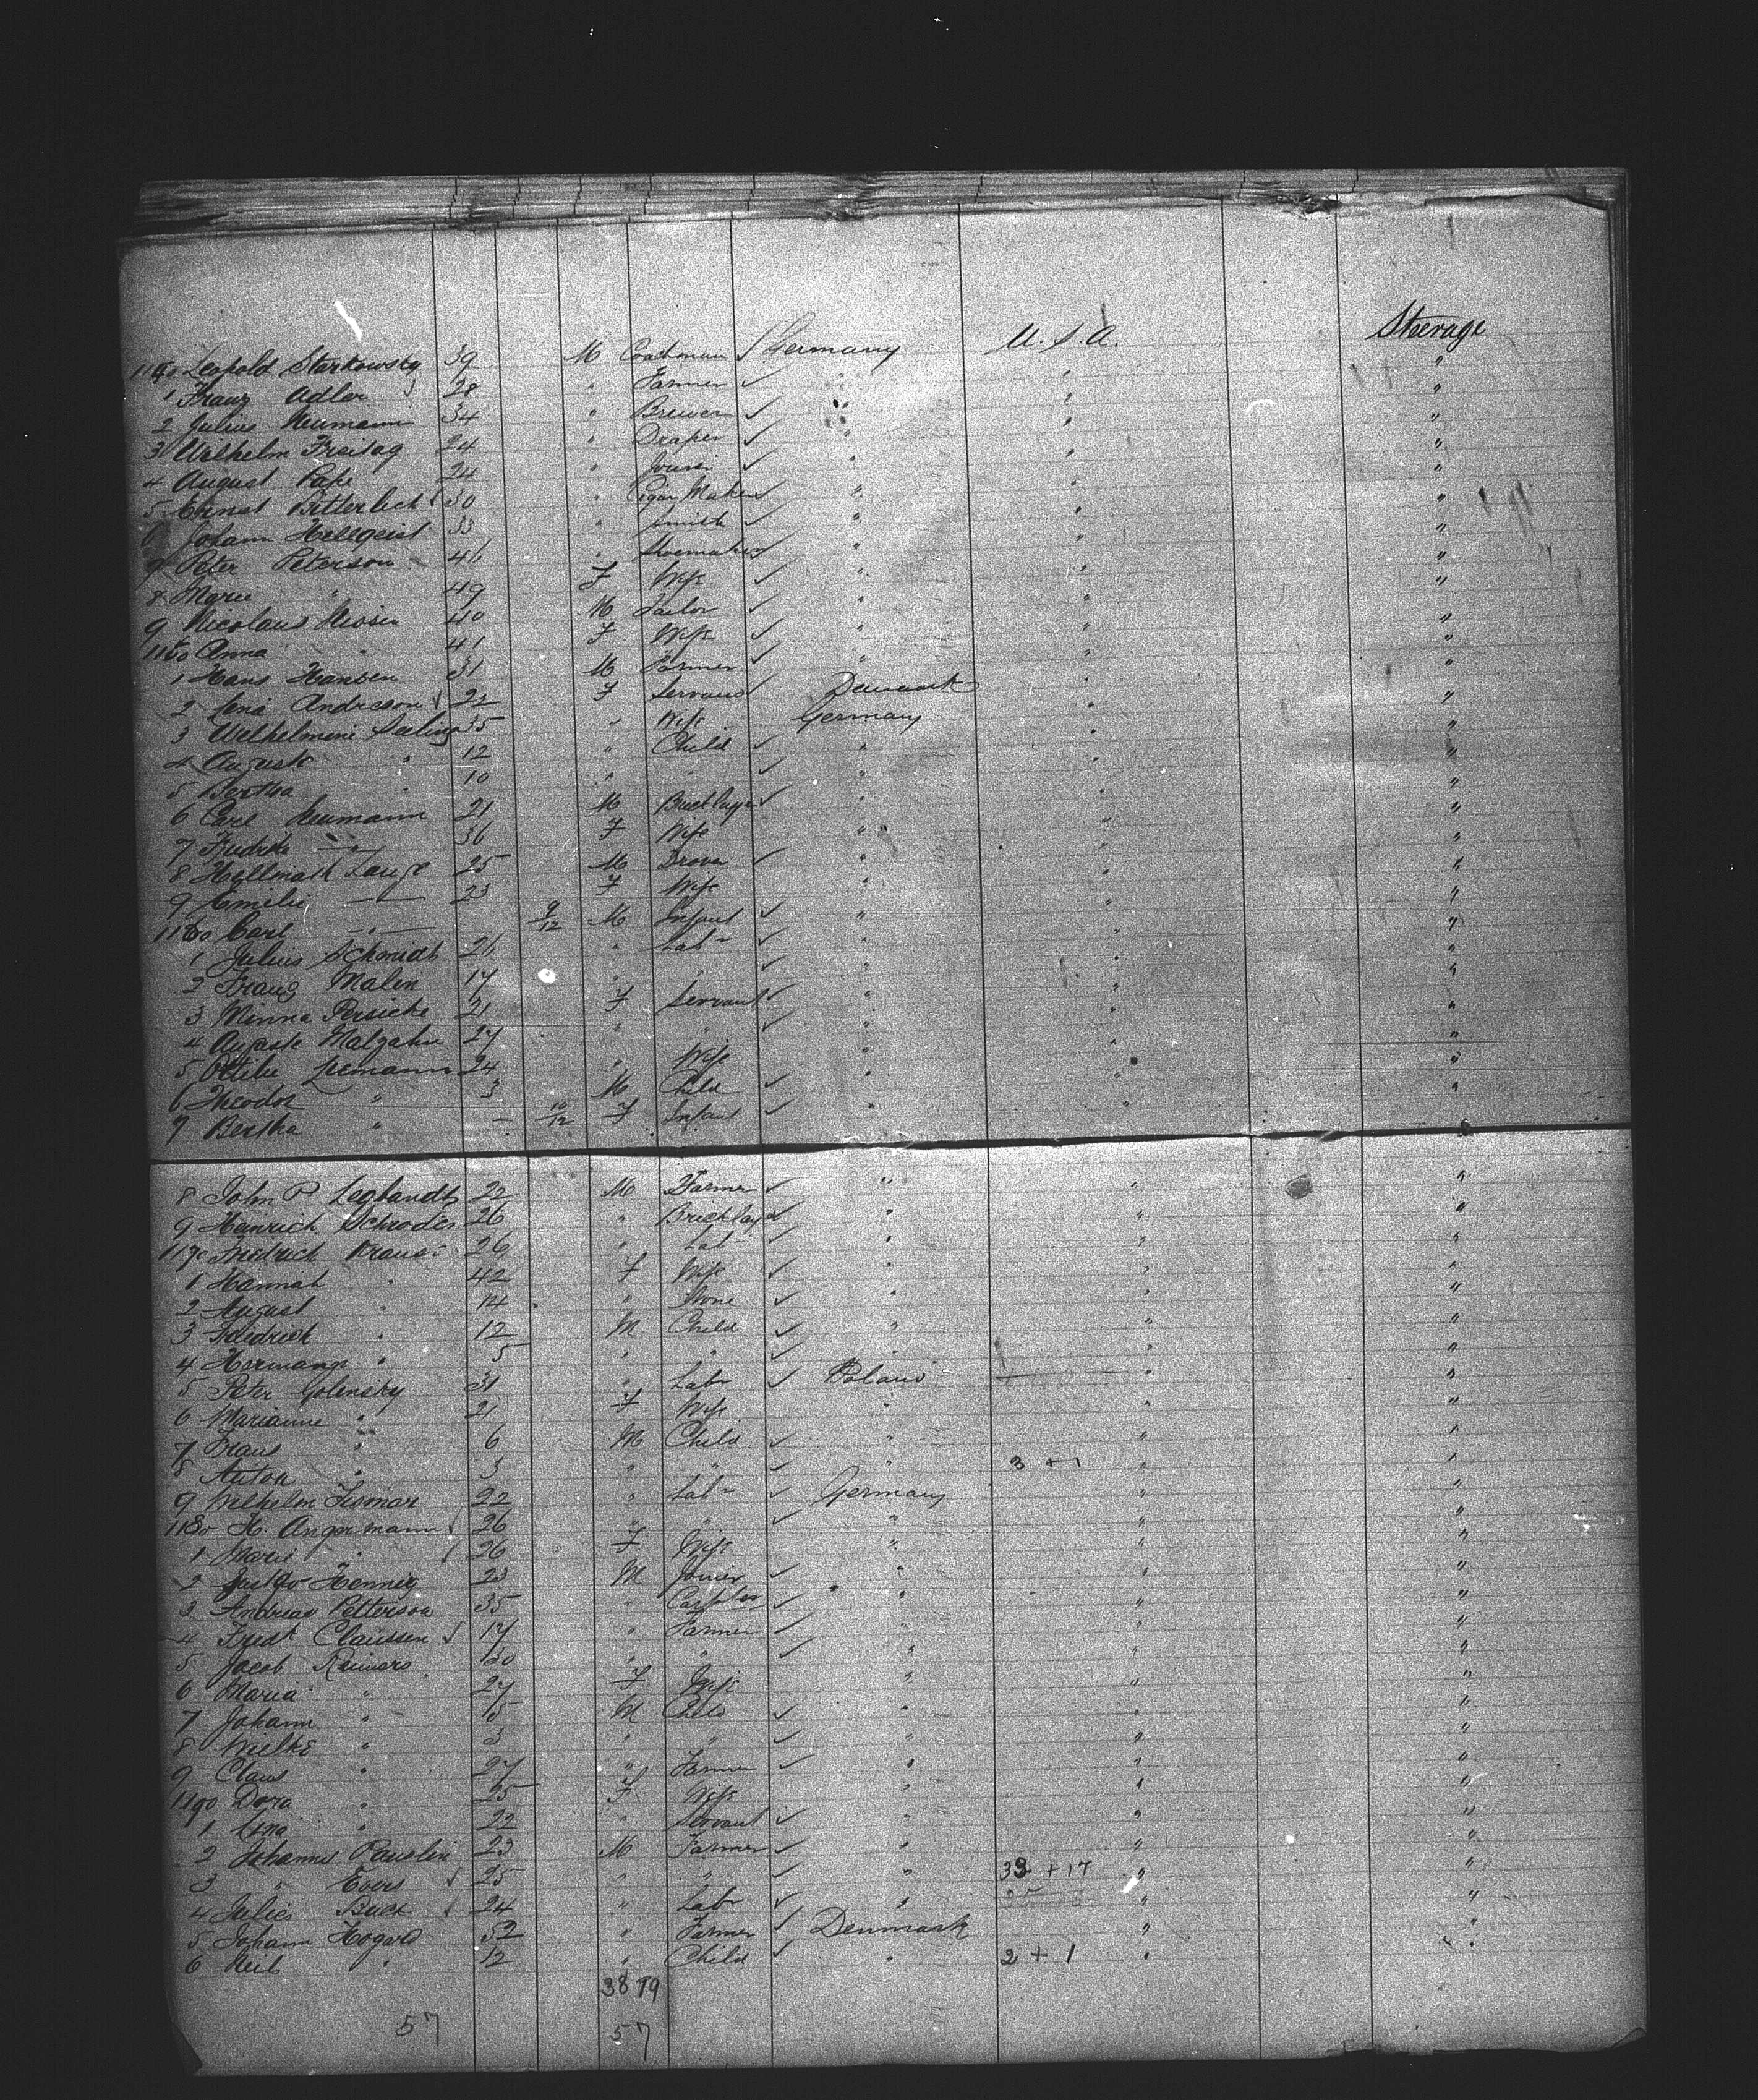 1140 Leopold Starkowsky 39 M Coachman ✓ Germany U.S.A. Steerage
1 Franz Adler 28 " Farmer ✓ " " "
2 Julius Neumann 34 " Brewer ✓ " " "
3 Wilhelm Freitag 24 " Draper ✓ " " "
4 August Pape 24 " ✓ " " "
5 Ernst Bitterlich 30 " Cigar Maker ✓ " " "
6 Johann Hellgeist 33 " Smith ✓ " " "
7 Peter Peterson 46 " Shoemaker ✓ " " "
8 Marie " 49 F Wife ✓ " " "
9 Nicolaus 40 M Tailor ✓ " " "
1150 Anna " 41 F Wife ✓ " " "
1 Hans Hansen 31 M Farmer ✓ " " "
2 Lena Andresson 22 F Servant ✓ Denmark " "
3 Wilhelmine Seeling 35 " Wife Germany " "
4 Auguste " 12 " Child ✓ " " "
5 Bertha " 10 " " ✓ " " "
6 Carl Neumann 21 M Bricklayer ✓ " " "
7 Fredrike " 36 F Wife " " "
8 Hellmath Lange 25 M Drover ✓ " " "
9 Emilie " 23 F Wife " " "
1160 Carl " 9/12 M Infant ✓ " " "
1 Julius Schmidt 26 " Labr ✓ " " "
2 Franz Malen 17 " " ✓ " " "
3 Minna Persicke 21 F Servant ✓ " " "
4 Auguste Malzahn 27 " " ✓ " " "
5 Ottilie Liemann 24 " Wife " " "
6 Theodor " 3 M Child ✓ " " "
7 Bertha " - 10/12 F Infant ✓ " " "
8 John P Legbandt 22 M Farmer ✓ " " "
9 Heinrich Schroder 26 " Bricklayer ✓ " " "
1170 Friedrich Krause 26 " Lab ✓ " " "
1 Hannah " 42 F Wife ✓ " " "
2 August " 14 " None ✓ " " "
3 Friedrich " 12 M Child ✓ " " "
4 Hermann " 5 " " ✓ " " "
5 Peter Golensky 31 " Labr ✓ Poland " "
6 Marianne " 21 F Wife " " "
7 Frans " 6 M Child ✓ " " "
8 Anton " 3 " " ✓ " 3 + 1 " "
9 Wilhelm Fismar 22 " Labr ✓ Germany " "
1180 H. Angermann 26 " " ✓ " " "
1 Marie " 26 F Wife " " "
2 Gustav Hennig 23 M Joiner ✓ " " "
3 Andreas Petterson 35 " ✓ " " "
4 Fredk Claussen 17 " Farmer ✓ " " "
5 Jacob Reimers 30 " " ✓ " " "
6 Maria " 27 F Wife " " "
7 Johann " 5 M Child ✓ " " "
8 Wielke " 3 " " ✓ " " "
9 Claus " 27 " Farmer ✓ " " "
1190 Dora " 25 F Wife " " "
1 Lina " 22 " Servant ✓ " " "
2 Johannes Paustin 23 M Farmer ✓ " " "
3 " Evers 25 " " ✓ " 33 + 17 " "
4 Julius Buck 24 " Labr ✓ " " "
5 Johann Hogard 52 " Farmer ✓ Denmark " "
6 Neils " 12 " Child ✓ " 2 + 1 " "
38 19
57 57